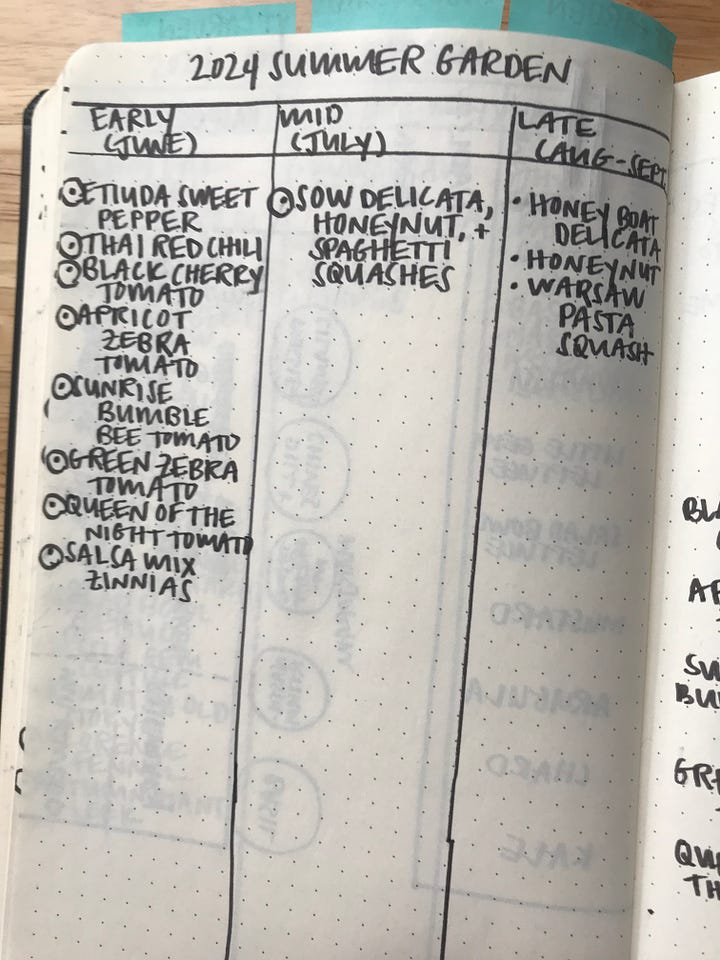 2024 SUMMER GARDEN
EARLY
(JUNE)
ETIUDA SWEET
PEPPER
THAI RED CHILI
BLACK CHERRY
TOMATO
APRICOT
ZEBRA
TOMATO
SUNRISE
BUMBLE
BEE TOMATO
GREEN ZEBRA
TOMATO
QUEEN OF THE
NIGHT TOMATO
SALSA MIX
ZINNIAS
MID
(JULY)
SOW DELICATA,
HONEYNUT, +
SPAGHETTI
SQUASHES
LATE
(AUG-SEPT)
• HONEY BOAT
DELICATA
• HONEYNUT
• WARSAW
PASTA
SQUASH